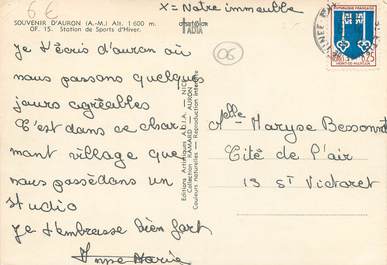 6 €
X = Notre immeuble
SOUVENIR D'AURON (A.-M.) Alt. 1 600 m.
OF. 15. Station de Sports d'Hiver.
ADIA
06
Je t'écris d'auron où
nous passons quelques
jours agréables
C'est dans ce char
mant village que
nous possédons un
studio
Je t'embrasse bien fort
Anne Marie
Editions Artistiques A.D.I.A. - NICE
Collection RAMARD - AURON
Couleurs naturelles - Reproduction interdite
REPUBLIQUE FRANCAISE
0,25
MONT-DE-MARSAN
Melle Maryse Bessonnet
Cité de l'air
13 St Victoret